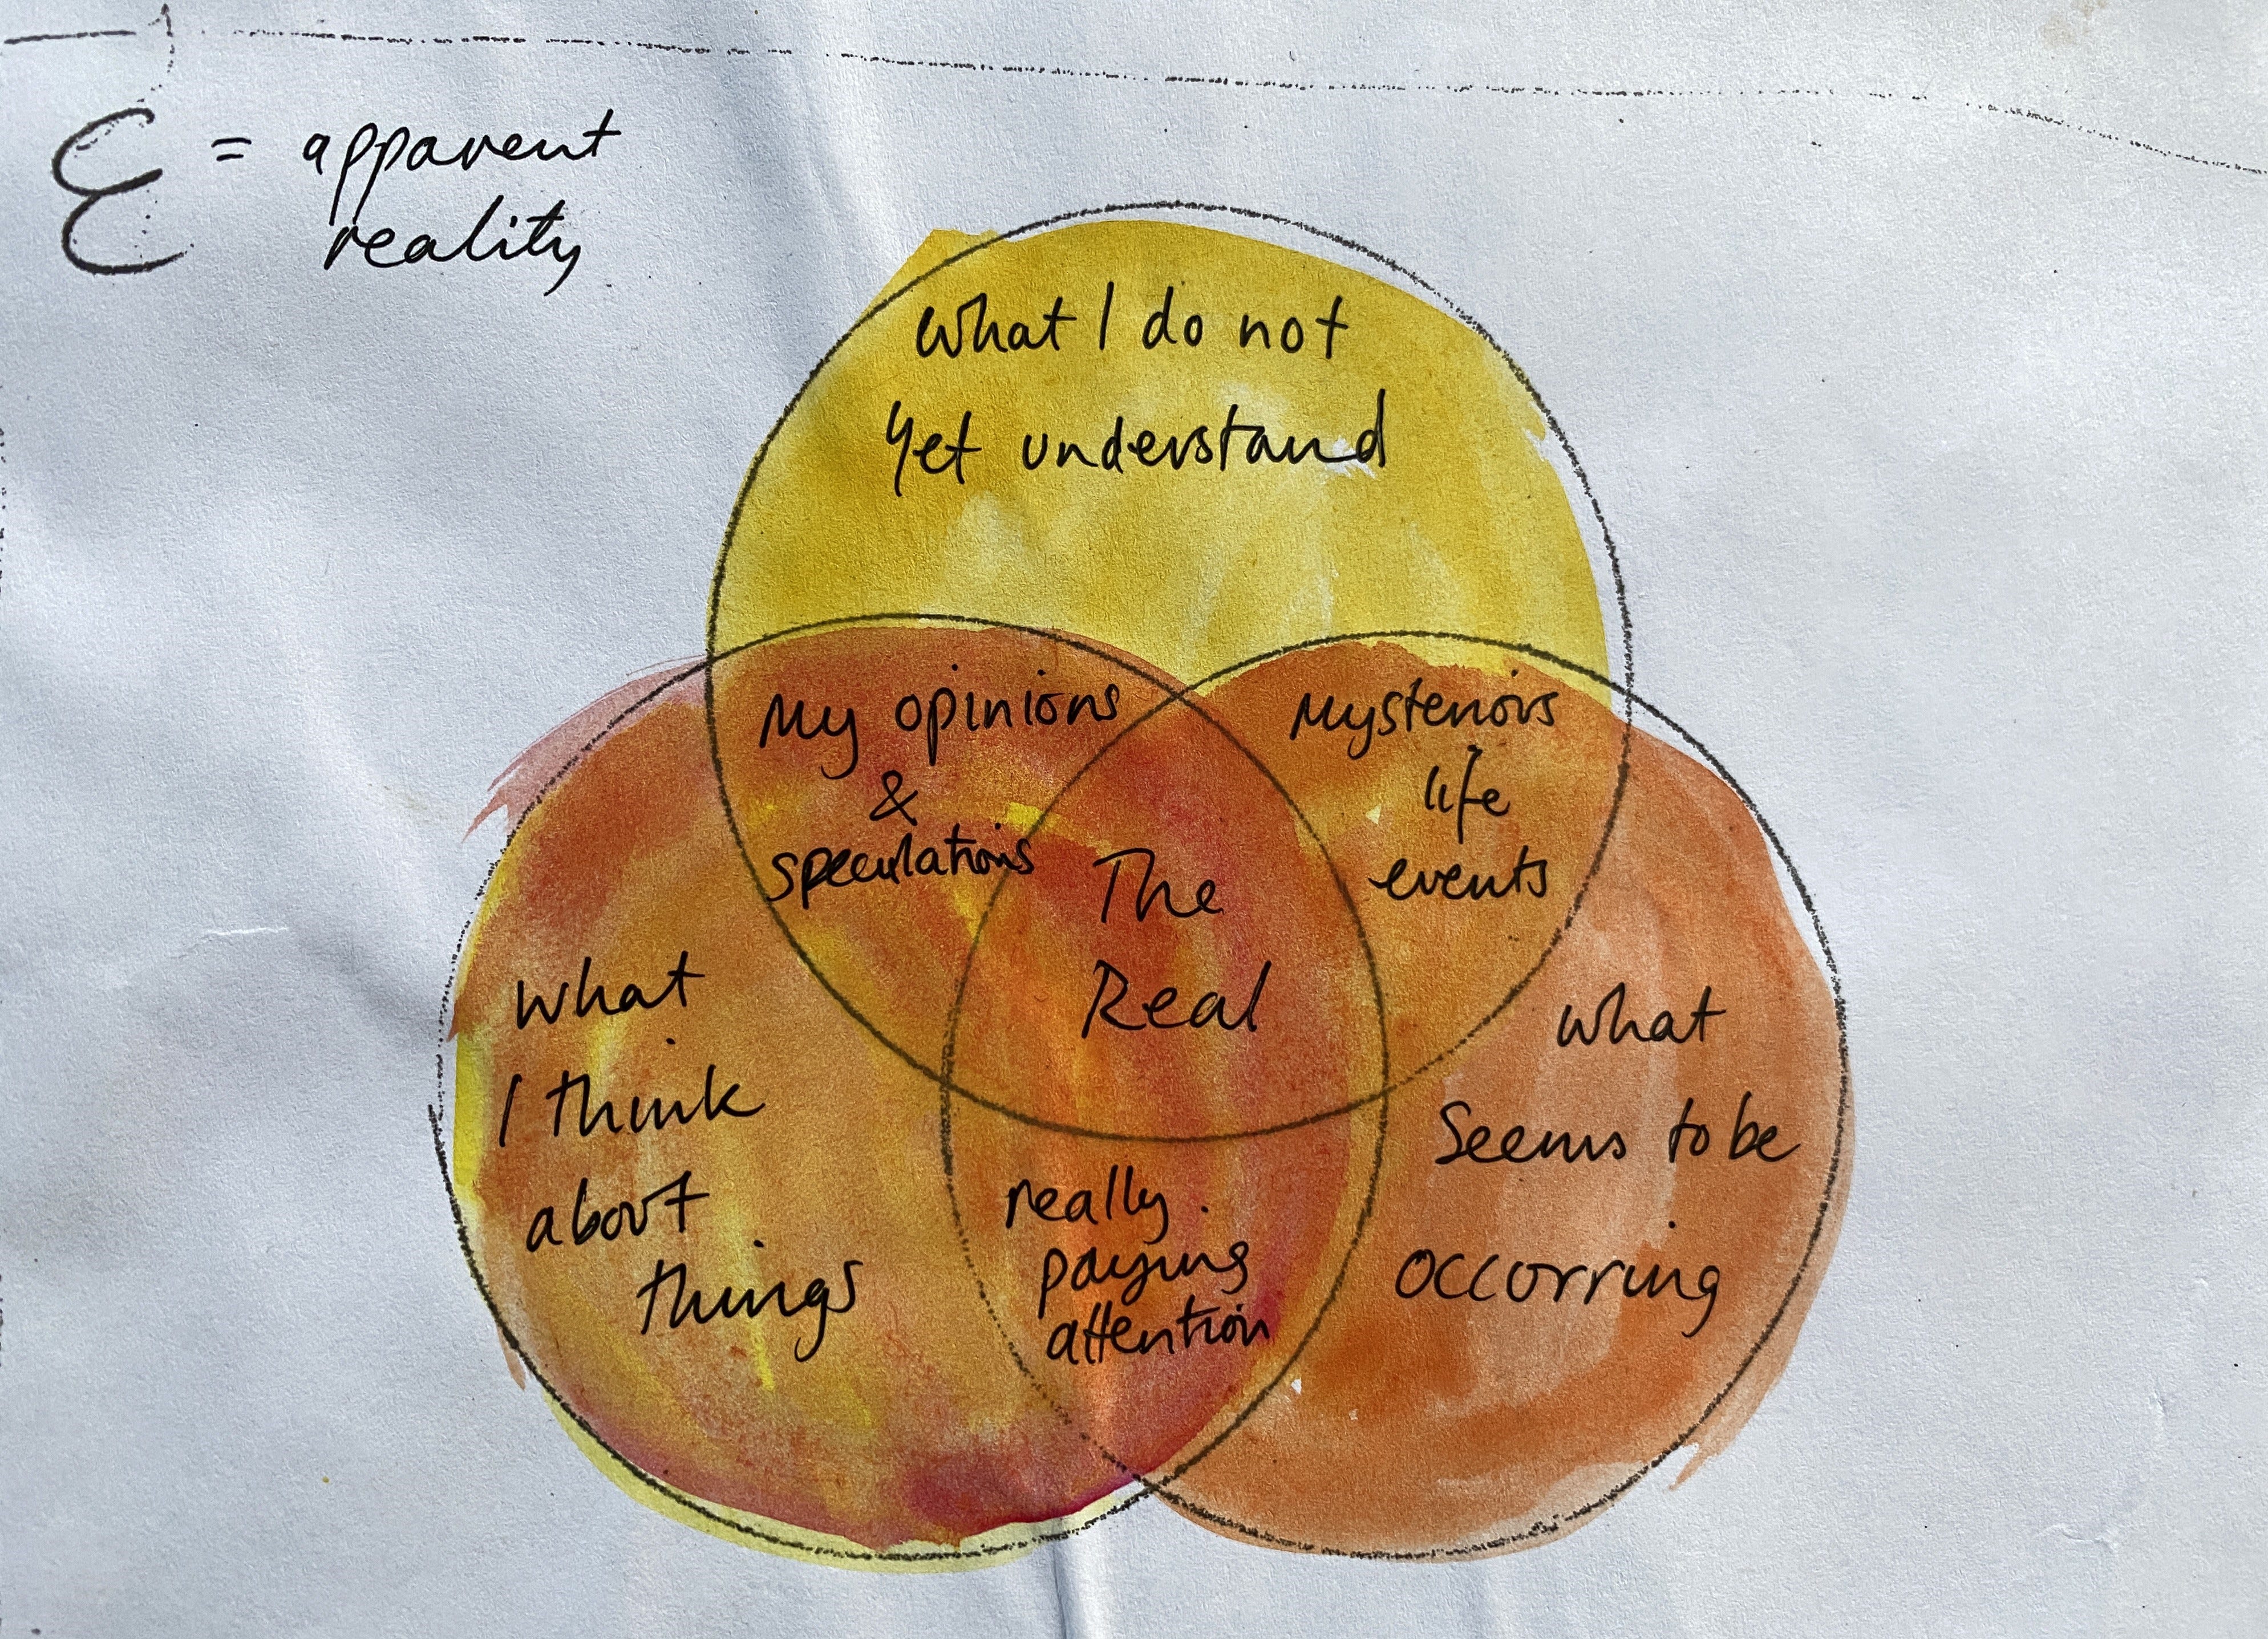 Ɛ = apparent
reality
What I do not
Yet understand
My opinions
&
speculations
Mysterious
life
events
The
Real
What
I think
about
things
What
Seems to be
occorring
really
paying
attention